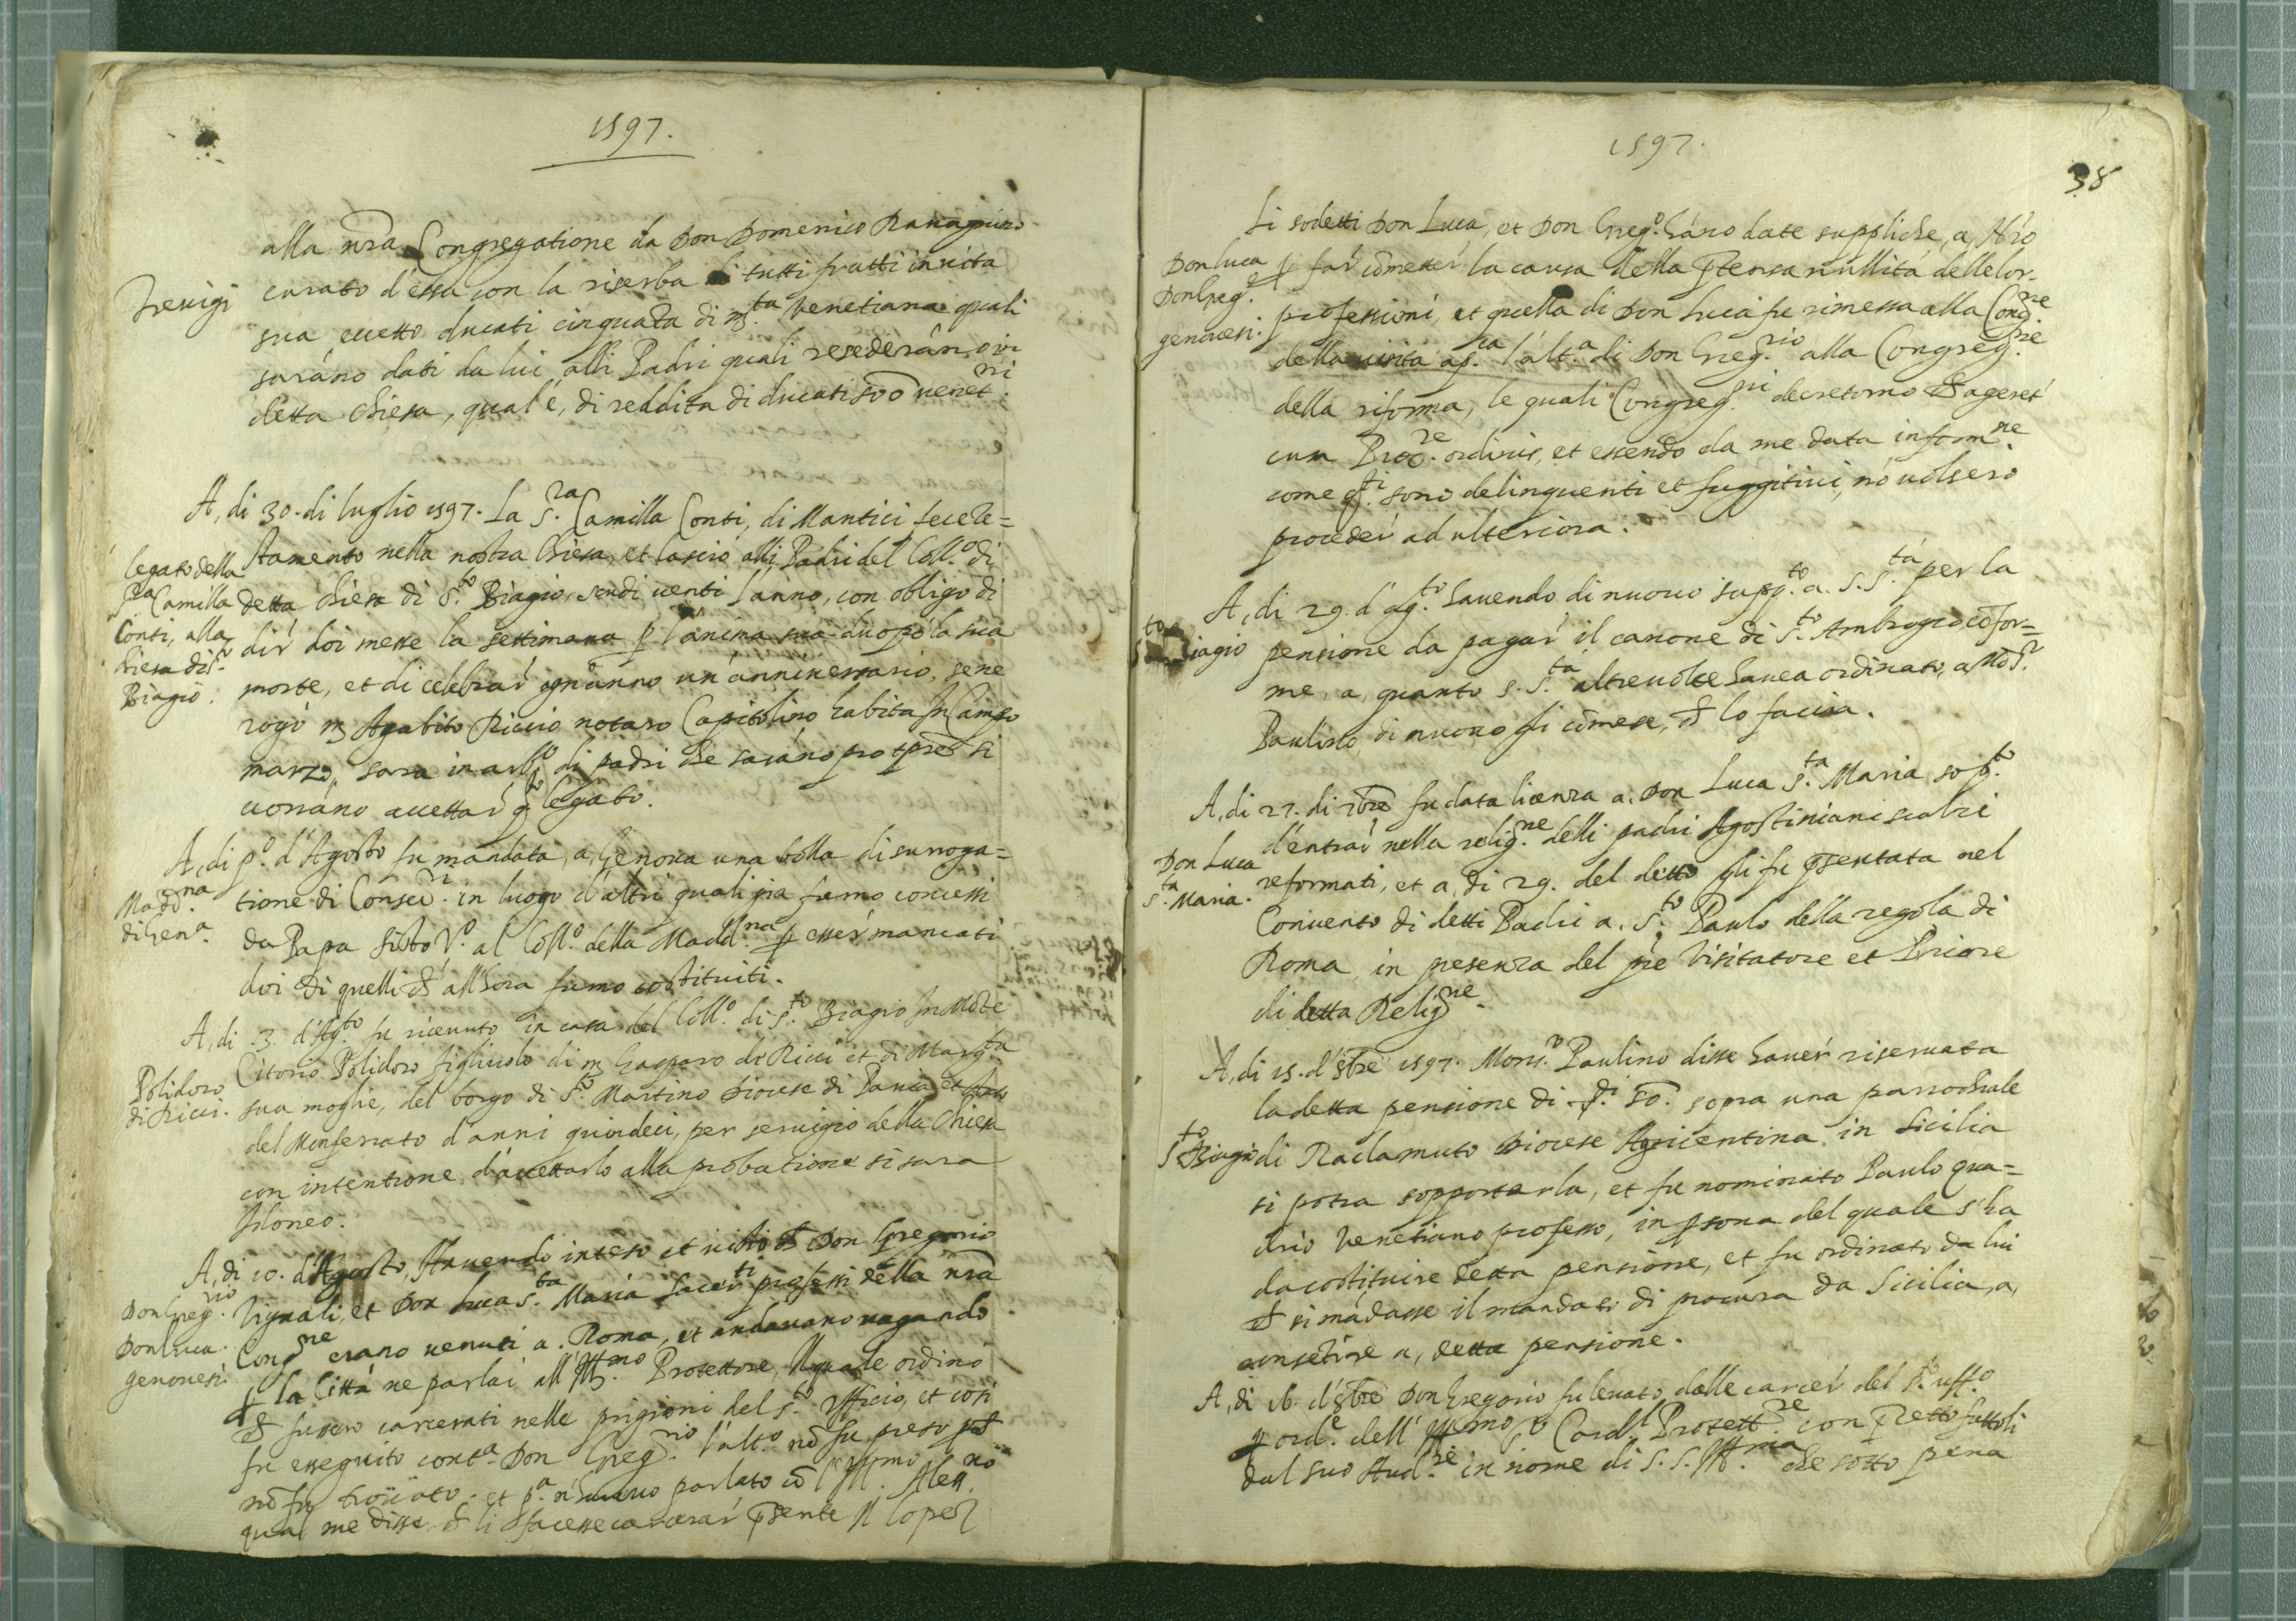 1597.
alla nrã Congregatione da Don Domenico
Trevigi
curato d'essa con la riserba di tutti frutti in vita
sua eccetto ducati cinquãta di m.ta venetiana quali
sarãno dati da lui alli Padri quali resederãno ivi
detta chiesa, qual'è, di reddita di ducati 500 venet.ni
A, di 30. di luglio 1597. La S.ra Camilla Conti, di Mantici fece te=
legato della
S.ra Camilla
Conti, alla
chiesa di S.to
Biagio.
stamento nella nostra Chiesa, et lasciò alli Padri del Coll.o di
detta chiesa di S.to Biagio scudi venti l'anno, con obligo di
dir doi messe la settimana p l'anima sua dopò la sua
morte, et di celebrar ogn'anno un'anniversario, se ne
rogò m Agabito Riccio notaro Capitolino habita In Campo
marzo, sara in arb.o di padri che sarãno pro tpre si
vorrãno accettar q.to legato.
A, di p.o d'Agosto fu mandata, a, Genova una bolla di surroga=
Madd.na
di Gen.a
tione di Conser.ri in luogo d'altri quali gia furno concessi
da Papa Sisto V.o al Coll.o della Madd.na p esser mancati
doi di quelli ch all'hora furno costituiti.
A, di .3. d'Ag.to fu ricevuto in casa del Coll.o di S.to Biagio In Mõte
Polidoro
di Ricci.
Citorio Polidoro figliuolo di m Gasparo de Ricci et di Marg.ta
sua moglie, del borgo di S.to Martino diocese di Pavia et
del Monferrato d'anni quindeci, per servigio della Chiesa
con intentione d'accettarlo alla probatione si sara
Idoneo.
A, di 10. d'Agosto, Havendo inteso et visto ch Don Gregorio
Don Greg.rio
Don Luca
genovesi
Vignali, et Don Luca S.ta Maria sacer.ti professi della nrã
Cong.ne erano venuti a. Roma, et andavano vagando
p la Città ne parlai all'Ill.mo Protettore, Il quale ordinò
ch fussero carcerati nelle prigioni del S.to Ufficio, et così
fu esseguito cont.a Don Greg.rio l'alt.o nõ fu preso pch
nõ fu trovato. et p.a n'havevo parlato cõ l'Ill.mo Aless.no
qual me disse ch li facesse carcerar p̃sente Il Lopez
1597.
38
Li sodetti Don Luca, et Don Greg.o hãno date suppliche, a, N'rõ
Don Luca
Don Greg.o
genovesi.
p far cõmetter la causa della p̃tensa nullità delle lor
professioni, et quella di Don Luca fu rimessa alla Cong.ne
della visita ap.ca l'alt.a di Don Greg.rio alla Congreg.ne
della riforma, le quali Congreg.ni decretorno ch ageret
cum Proc.re ordinis, et essendo da me data inform.ne
come q.ti sono delinquenti et fuggitivi, nõ volsero
proceder ad ulteriora.
A, di 29. d'Ag.to havendo di nuovo supp.to a. S. S.tà per la
S.to Biagio
pensione da pagar il canone di S.to Ambrogio cõfor=
me, a, quanto S. S.ta altre volte havea ordinato, a Mõs.r
Paulino, di nuovo gli cõmese, ch lo faccia.
A, di 27. di 7bre fu data licenza a. Don Luca S.ta Maria sop.to
Don Luca
S.ta Maria.
d'entrar nella relig.ne delli padri Agostiniani scalzi
reformati, et a, di 29. del detto gli fu p̃sentata nel
Convento di detti Padri a. S.to Paulo della regola di
Roma, in presenza del prẽ Visitatore et Priore
di detta Relig.ne
A, di 15. d'8bre 1597. Mons.r Paulino disse haver riservata
la detta pensione di 50. sopra una parrochiale
S.to Biagio
di Raclamuto diocese Agricentina in Sicilia
si potra sopportarla, et fu nominato Paulo qua=
drio Venetiano professo, in p̃sona del quale s'ha
da costituire detta pensione, et fu ordinato da lui
ch si mãdasse il mandato di procura da Sicilia, a,
consẽtire a, detta pensione.
A, di 16. d'8bre Don Gregorio fu levato dalle carcer del S.to uff.o
p ord.e dell'Ill.mo S.r Card.l Protett.re con p̃cetto fattoli
dal suo Aud.re in nome di S. S. Ill.ma che sotto pena